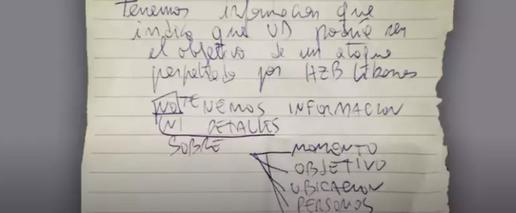 Tenemos información que
indica que UD podría ser
el objetivo de un ataque
perpetrado por HZB Líbanes
NO TENEMOS INFORMACION
NI DETALLES
SOBRE
MOMENTO
OBJETIVO
UBICACION
PERSONAS